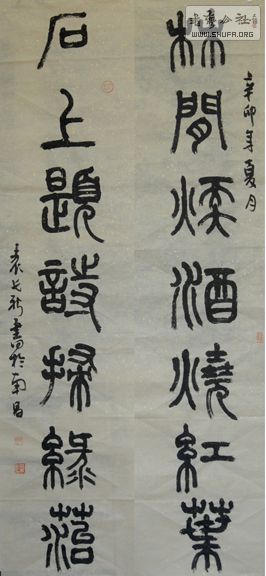 公社
WWW.SHUFA.ORG
辛卯年夏月
林間煖酒燒紅葉
石上題詩掃綠菭
書於南昌